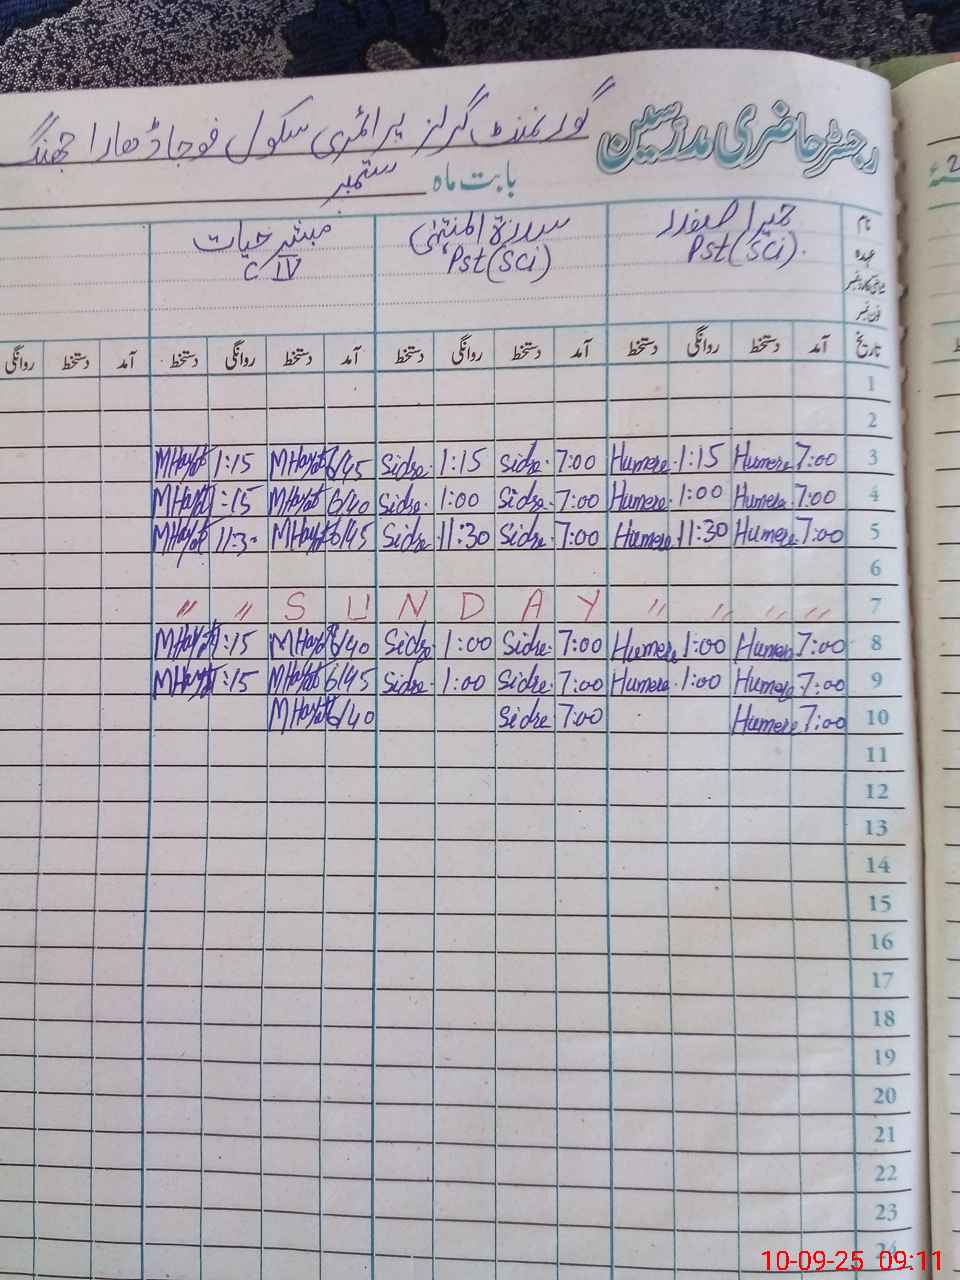 رجسٹر حاضری مدرسین گورنمنٹ گرلز پرائمری سکول فوجا ڈھارا جھنگ
بابت ماہ ستمبر
نام حمیرا صفدر سدرۃ المنتہیٰ مبشر حیات
عہدہ Pst(Sci). Pst(Sci) C IV
فون نمبر
تاریخ آمد دستخط روانگی دستخط آمد دستخط روانگی دستخط آمد دستخط روانگی دستخط آمد دستخط روانگی
1
2
3 7:00 Humera 1:15 Humera 7:00 Sidra 1:15 Sidra 6/45 MHayat 1:15 MHayat
4 7:00 Humera 1:00 Humera 7:00 Sidra 1:00 Sidra 6/40 MHayat 1:15 MHayat
5 7:00 Humera 11:30 Humera 7:00 Sidra 11:30 Sidra 6/45 MHayat 11:30 MHayat
6
7 " " " " Y A D N U S " "
8 7:00 Humera 1:00 Humera 7:00 Sidra 1:00 Sidra 6/40 MHayat 1:15 MHayat
9 7:00 Humera 1:00 Humera 7:00 Sidra 1:00 Sidra 6/45 MHayat 1:15 MHayat
10 7:00 Humera 7:00 Sidra 6/40 MHayat
11
12
13
14
15
16
17
18
19
20
21
22
23
24
10-09-25 09:11